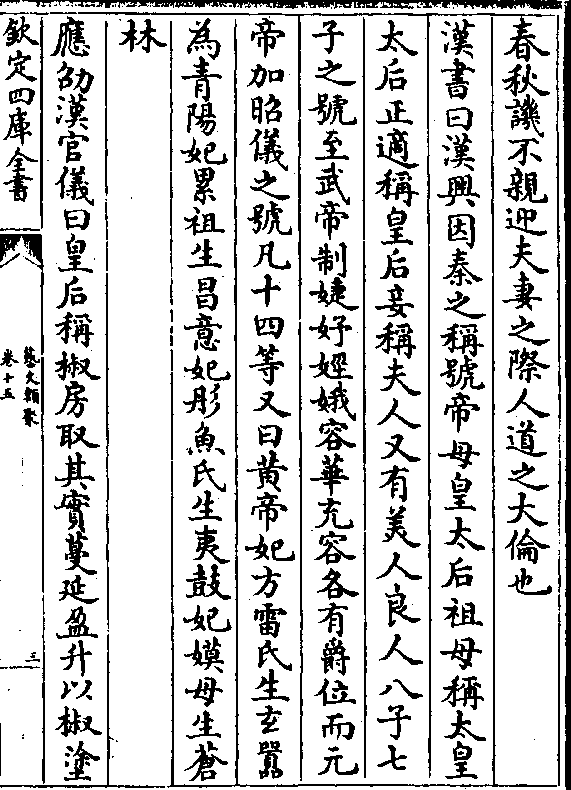 春秋譏不親迎夫妻之際人道之大倫也
漢書曰漢興因秦之稱號帝母皇太后祖母稱太皇
太后正適稱皇后妾稱夫人又有美人良人八子七
子之號至武帝制婕妤娙娥容華充容各有爵位而元
帝加昭儀之號凡十四等又曰黄帝妃方雷氏生玄囂
為青陽妃累祖生昌意妃彤魚氏生夷鼓妃嫫母生蒼
林
應劭漢官儀曰皇后稱椒房取其實蔓延盈升以椒塗
欽定四庫全書
藝文類聚
卷十五
三